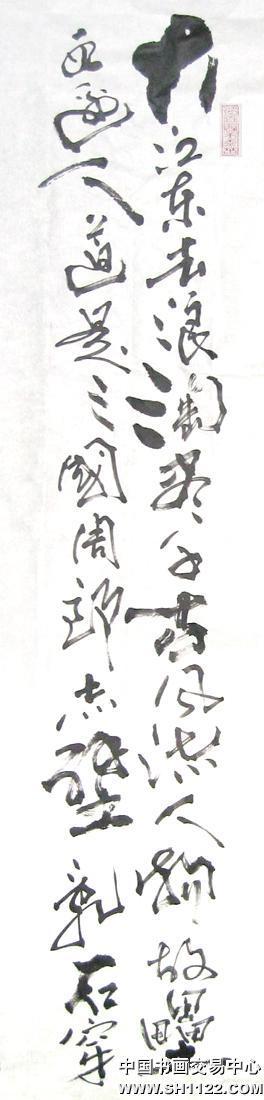 大江东去浪淘尽千古风流人物故壘
西邊人道是三國周郎赤壁乱石穿
中国书画交易中心
www.SH1122.com